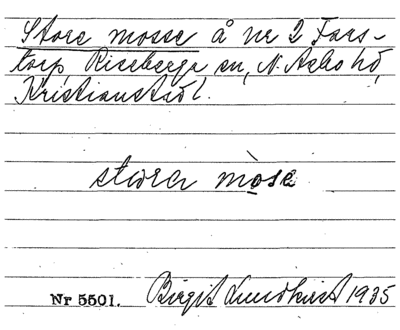 Store mosse å nr 2 Fars-
torp, Riseberga sn, N. Åsbo hd,
Kristianstad l.
stora mòse
Nr 5501. Birgit Lundkvist 1935